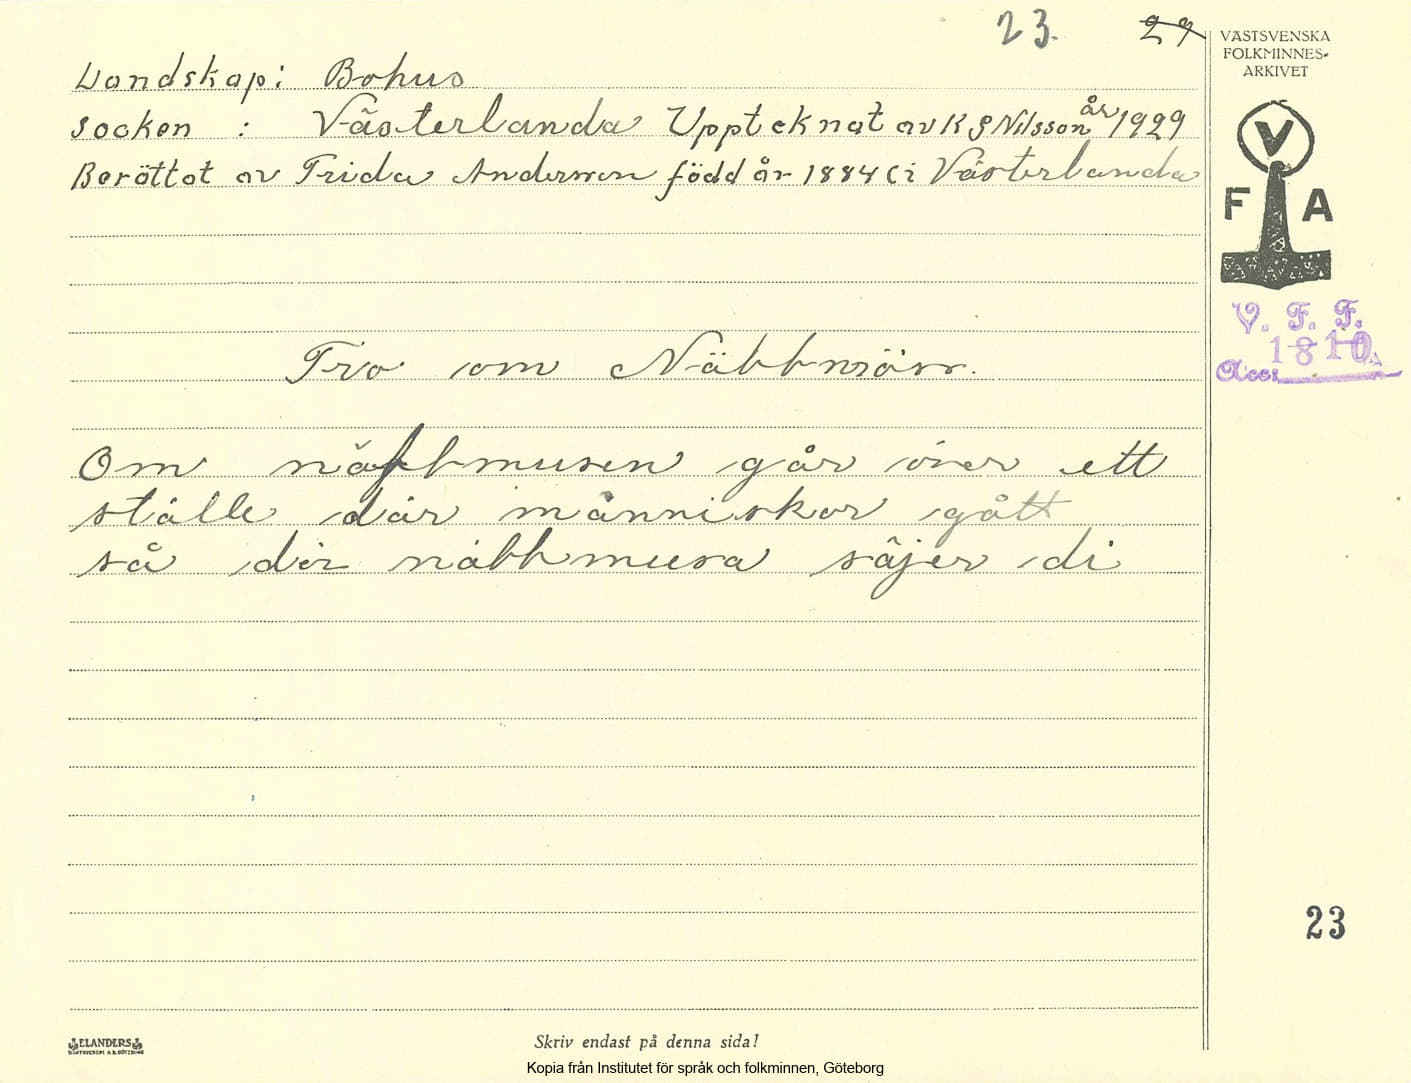 23. 29
VÄSTSVENSKA
FOLKMINNES-
ARKIVET
Landskap: Bohus
socken : Västerlanda Upptecknat av K G Nilsson år 1929
Berättat av Frida Andersson född år 1884 i Västerlanda
V
F A
V. F. F.
1810
Acc:
Tro om Näbbmöss.
Om näbbmusen går över ett
ställe där människor gått
så dör näbbmusa säjer di
23
ELANDERS
BOKTRYCKERI A.B. GÖTEBORG
Skriv endast på denna sida!
Kopia från Institutet för språk och folkminnen, Göteborg